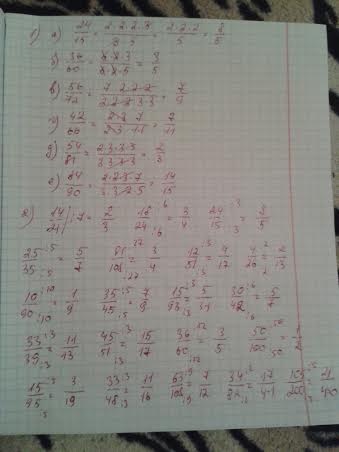 1) а) 24/15 = 2·2·2·3/3·5 = 2·2·2/5 = 8/5
б) 36/60 = 3/5
в) 56/72 = 7·2·2·2/2·2·2·3·3 = 7/9
г) 42/66 = 2·3·7/2·3·11 = 7/11
д) 54/81 = 2·3·3·3/3·3·3·3 = 2/3
е) 84/90 = 2·2·3·7/3·3·2·5 = 14/15
2) 14/21 :7 = 2/3 18/24 :6 = 3/4 24/15 :3 = 8/5
25/35 :5 = 5/7 81/108 :27 = 3/4 12/51 :3 = 4/17 4/26 :2 = 2/13
10/90 :10 = 1/9 35/45 :5 = 7/9 15/93 :3 = 5/31 30/42 :6 = 5/7
33/39 :3 = 11/13 45/51 :3 = 15/17 36/60 :12 = 3/5 50/100 :50 = 1/2
15/95 :5 = 3/19 33/48 :3 = 11/16 63/108 :9 = 7/12 34/82 :2 = 17/41 105/200 :5 = 21/40